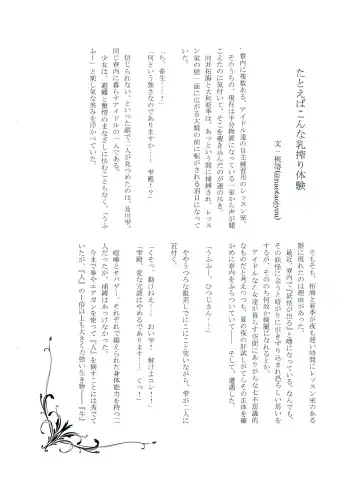 たとえばこんな乳搾り体験
寮内に複数ある、アイドル達の自主練習用のレッスン室。
そのうちの、現在は半分物置になっている一室から声が聞
こえたのに気付いて、そこを覗き込んだのが運の尽き。
向井拓海と大和亜季は、あっという間に捕縛され、レッス
ン室の壁一面に広がる大鏡の前に転がされる羽目になって
いた。
「ち、畜生……！」
「何という無さなのでありますか……　雫殿！？」
信じられない、といった顔で二人が見つめたのは、及川雫。
同じ寮内に暮らすアイドルの一人である。
少女は、
ふー」と楽し気な笑みを浮かべていた。
そもそも、拓海と亜季が夜も遅い時間にレッスン室のある
階に現れたのは理由があった。
最近、寮内で『妖怪が出る』と噂になっている。なんでも、
その妖怪に会うと暗がりに引きずり込まれ恐ろしい思いを
するが、そののち何故か綺麗になれるとか。
アイドルなど少女達が暮らす空間にありがちな七不思議的
なものだと考えつつも、夏の夜の肝試しがてらその正体を確
かめに寮内をぶらついていて――　そして、遭遇した。
「うふふー、ひつじさん……」
「雫殿、変な冗談はやめるであります……　くっ！」
「くそっ、動けねえ……　おい雫！　解けよコレ！！」
ややうつろな眼差しでにこにこと笑いながら、雫が二人に
近付く。
喧嘩とサバゲー、それぞれで鍛えられた身体能力を持つ二
人だったが、捕縛はあっけなかった。
今まで拳やエアガンを使って『人』を倒すことには秀でて
いたが、『人』の一倍以上も大きく力強い生き物――『牛』